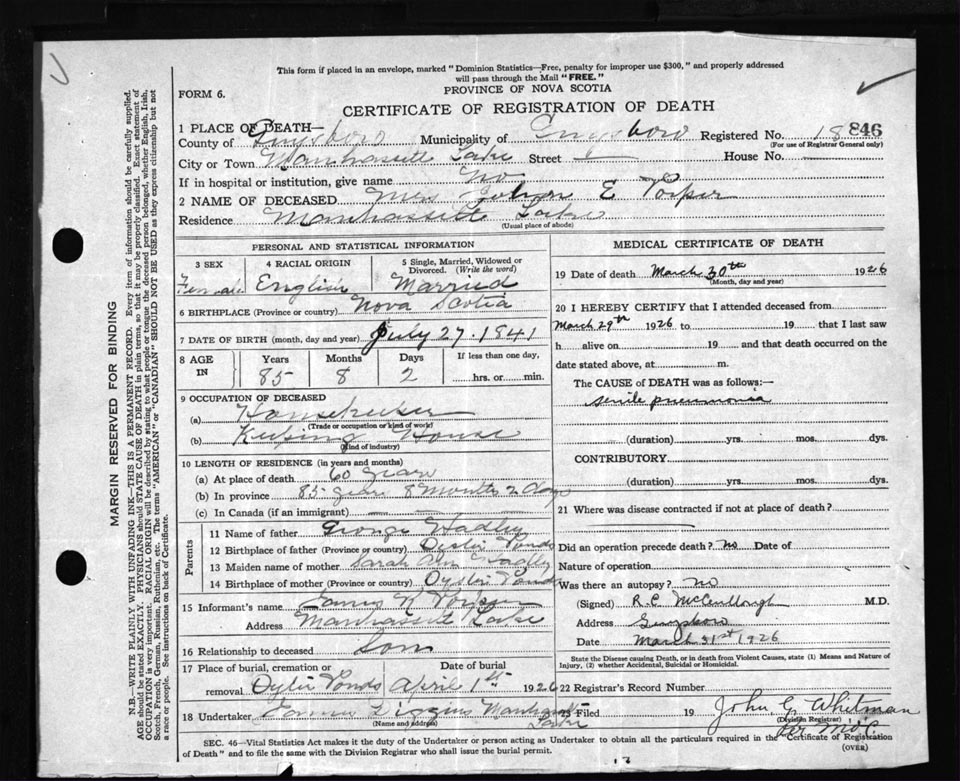 This form if placed in an envelope, marked "Dominion Statistics—Free, penalty for improper use $300," and properly addressed
will pass through the Mail "FREE."
PROVINCE OF NOVA SCOTIA
FORM 6.
CERTIFICATE OF REGISTRATION OF DEATH
1 PLACE OF DEATH—
County of Guysboro Municipality of Guysboro Registered No. 18 846
(For use of Registrar General only)
City or Town Manhassette Lake Street House No.
If in hospital or institution, give name No
2 NAME OF DECEASED Mrs E Porper
Residence Manhassette Lake
(Usual place of abode)
PERSONAL AND STATISTICAL INFORMATION
3 SEX 4 RACIAL ORIGIN 5 Single, Married, Widowed or Divorced. (Write the word)
Female English Married
6 BIRTHPLACE (Province or country) Nova Scotia
7 DATE OF BIRTH (month, day and year) July 27. 1841
8 AGE IN Years Months Days If less than one day,
85 8 2 hrs. or min.
9 OCCUPATION OF DECEASED
(a) Housekeeper
(Trade or occupation or kind of work)
(b) Keeping House
(Kind of industry)
10 LENGTH OF RESIDENCE (in years and months)
(a) At place of death 60 years
(b) In province 85 years 8 Months 2 days
(c) In Canada (if an immigrant)
Parents
11 Name of father George Hadley
12 Birthplace of father (Province or country) Oyster Ponds
13 Maiden name of mother Sarah Ann Hadley
14 Birthplace of mother (Province or country) Oyster Ponds
15 Informant's name James Porper
Address Manhassett Lake
16 Relationship to deceased Son
17 Place of burial, cremation or removal Date of burial
Oyster Ponds April 1st 1926
18 Undertaker Manhassett Lake
(Name and address)
MEDICAL CERTIFICATE OF DEATH
19 Date of death March 30th 1926
(Month, day and year)
20 I HEREBY CERTIFY that I attended deceased from
March 29th 1926 to 19 that I last saw
h alive on 19 and that death occurred on the
date stated above, at m.
The CAUSE of DEATH was as follows:—
senile pneumonia
(duration) yrs. mos. dys.
CONTRIBUTORY
(duration) yrs. mos. dys.
21 Where was disease contracted if not at place of death?
Did an operation precede death? No Date of
Nature of operation
Was there an autopsy? No
(Signed) R.C McCullough M.D.
Address Guysboro
Date March 31st 1926
State the Disease causing Death, or in death from Violent Causes, state (1) Means and Nature of
Injury, (2) whether Accidental, Suicidal or Homicidal.
22 Registrar's Record Number
23 Filed 19 John G. Whitman
(Division Registrar)
SEC. 46—Vital Statistics Act makes it the duty of the Undertaker or person acting as Undertaker to obtain all the particulars required in the Certificate of Registration
of Death" and to file the same with the Division Registrar who shall issue the burial permit.
(OVER)
MARGIN RESERVED FOR BINDING
N.B.—WRITE PLAINLY WITH UNFADING INK—THIS IS A PERMANENT RECORD. Every item of information should be carefully supplied.
AGE should be stated EXACTLY. PHYSICIANS should STATE CAUSE OF DEATH in plain terms, so that it may be properly classified. Exact statement of
OCCUPATION is very important. RACIAL ORIGIN will be described by stating to what people or tongue the deceased person belonged, whether English, Irish,
Scotch, French, German, Russian, Ruthenian, etc. The terms "AMERICAN" or "CANADIAN" SHOULD NOT BE USED as they express citizenship but not
a race or people. See instructions on back of Certificate.